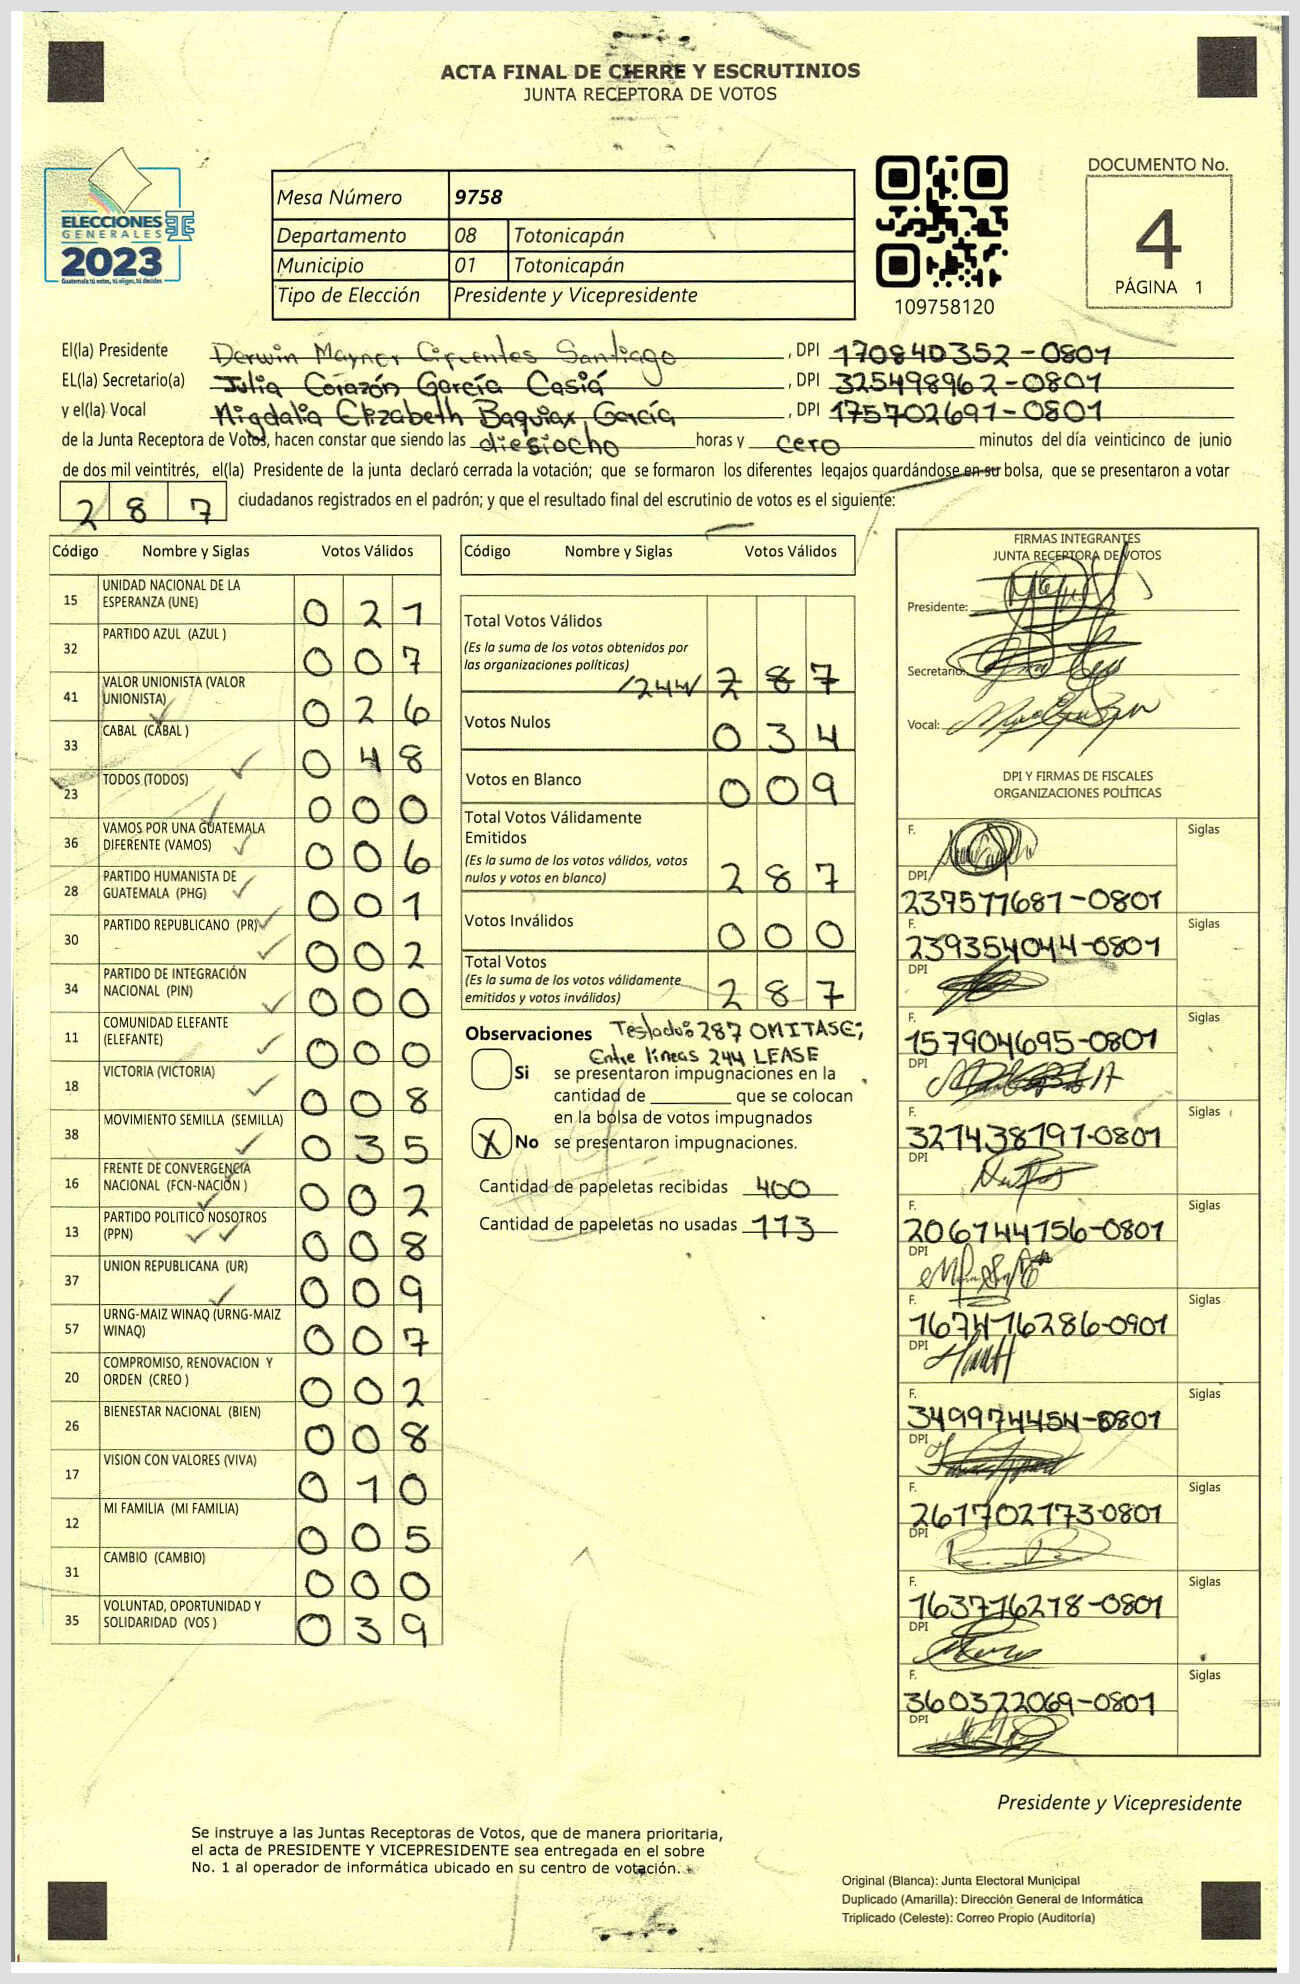 ACTA FINAL DE CIERRE Y ESCRUTINIOS
JUNTA RECEPTORA DE VOTOS
ELECCIONES
GENERALES
2023
Guatemala tú votas, tú eliges, tú decides
Mesa Número 9758
Departamento 08 Totonicapán
Municipio 01 Totonicapán
Tipo de Elección Presidente y Vicepresidente
109758120
DOCUMENTO No.
4
PÁGINA 1
El(la) Presidente Derwin Mayner Cifuentes Santiago, DPI 170840352-0801
EL(la) Secretario(a) Julia Corazón García Casiá, DPI 325498962-0801
y el(la) Vocal Migdalia Elizabeth Baquiax García, DPI 175702691-0801
de la Junta Receptora de Votos, hacen constar que siendo las diesiocho horas y cero minutos del día veinticinco de junio
de dos mil veintitrés, el(la) Presidente de la junta declaró cerrada la votación; que se formaron los diferentes legajos guardándose en su bolsa, que se presentaron a votar
287 ciudadanos registrados en el padrón; y que el resultado final del escrutinio de votos es el siguiente:
Código Nombre y Siglas Votos Válidos
15 UNIDAD NACIONAL DE LA ESPERANZA (UNE) 021
32 PARTIDO AZUL (AZUL ) 007
41 VALOR UNIONISTA (VALOR UNIONISTA) 026
33 CABAL (CABAL ) 048
23 TODOS (TODOS) 000
36 VAMOS POR UNA GUATEMALA DIFERENTE (VAMOS) 006
28 PARTIDO HUMANISTA DE GUATEMALA (PHG) 001
30 PARTIDO REPUBLICANO (PR) 002
34 PARTIDO DE INTEGRACIÓN NACIONAL (PIN) 000
11 COMUNIDAD ELEFANTE (ELEFANTE) 000
18 VICTORIA (VICTORIA) 008
38 MOVIMIENTO SEMILLA (SEMILLA) 035
16 FRENTE DE CONVERGENCIA NACIONAL (FCN-NACIÓN ) 002
13 PARTIDO POLITICO NOSOTROS (PPN) 008
37 UNION REPUBLICANA (UR) 009
57 URNG-MAIZ WINAQ (URNG-MAIZ WINAQ) 007
20 COMPROMISO, RENOVACION Y ORDEN (CREO ) 002
26 BIENESTAR NACIONAL (BIEN) 008
17 VISION CON VALORES (VIVA) 010
12 MI FAMILIA (MI FAMILIA) 005
31 CAMBIO (CAMBIO) 000
35 VOLUNTAD, OPORTUNIDAD Y SOLIDARIDAD (VOS ) 039
Código Nombre y Siglas Votos Válidos
Total Votos Válidos
(Es la suma de los votos obtenidos por
las organizaciones políticas)
/244/ 287
Votos Nulos 034
Votos en Blanco 009
Total Votos Válidamente
Emitidos
(Es la suma de los votos válidos, votos
nulos y votos en blanco) 287
Votos Inválidos 000
Total Votos
(Es la suma de los votos válidamente
emitidos y votos inválidos) 287
Observaciones Testado: 287 OMITASE;
Entre líneas 244 LEASE
Si se presentaron impugnaciones en la
cantidad de ________ que se colocan
en la bolsa de votos impugnados
X No se presentaron impugnaciones.
Cantidad de papeletas recibidas 400
Cantidad de papeletas no usadas 113
FIRMAS INTEGRANTES
JUNTA RECEPTORA DE VOTOS
Presidente:
Secretario:
Vocal:
DPI Y FIRMAS DE FISCALES
ORGANIZACIONES POLÍTICAS
F. Siglas
DPI
237511681-0801
F. Siglas
239354044-0801
DPI
F. Siglas
157904695-0801
DPI
F. Siglas
321438191-0801
DPI
F. Siglas
206744756-0801
DPI
F. Siglas
167416286-0901
DPI
F. Siglas
349974454-0801
DPI
F. Siglas
261702173-0801
DPI
F. Siglas
163716218-0801
DPI
F. Siglas
360322069-0801
DPI
Presidente y Vicepresidente
Se instruye a las Juntas Receptoras de Votos, que de manera prioritaria,
el acta de PRESIDENTE Y VICEPRESIDENTE sea entregada en el sobre
No. 1 al operador de informática ubicado en su centro de votación.
Original (Blanca): Junta Electoral Municipal
Duplicado (Amarilla): Dirección General de Informática
Triplicado (Celeste): Correo Propio (Auditoría)